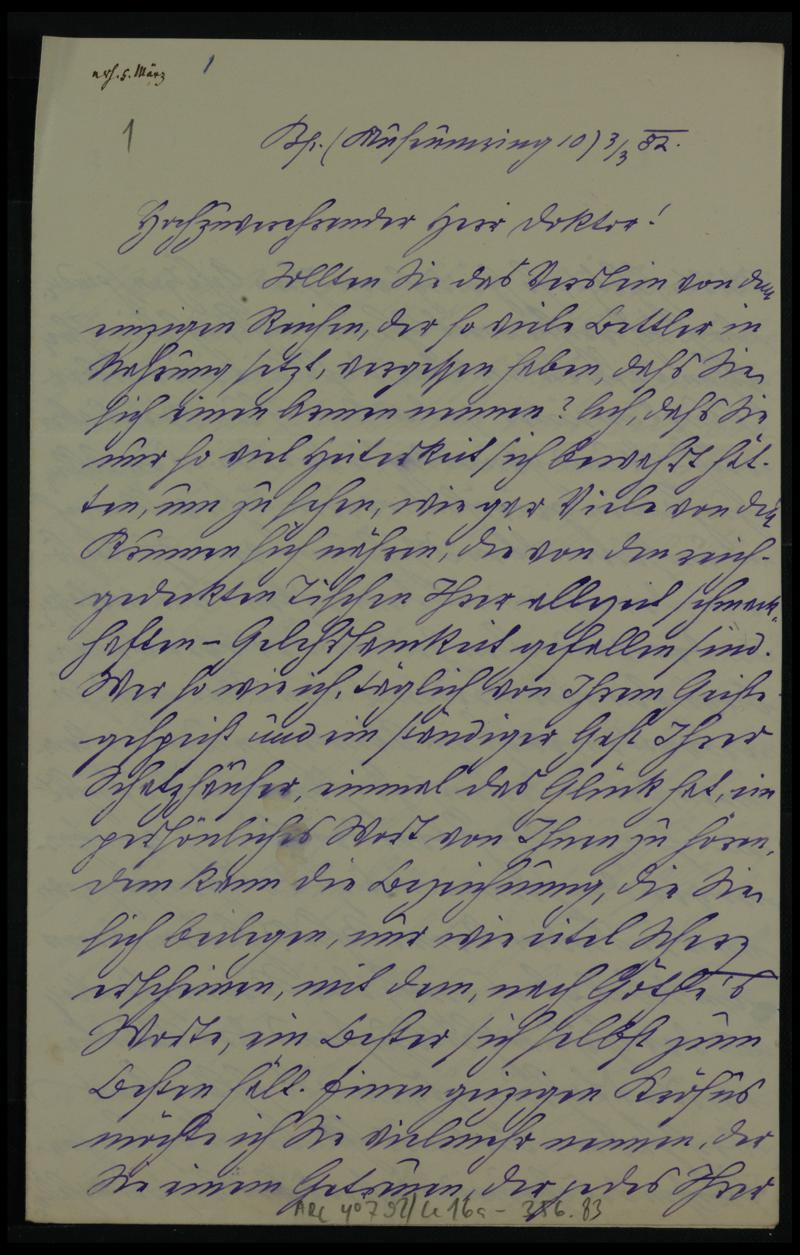 erh. 5. März
1
1
Bp. (Museumring 10) 3/3 82.
Hochzuverehrender Herr Doktor!
Sollten Sie das Verslein von dem
einzigen Reichen, der so viele Bettler in
Nahrung setzt, vergessen haben, daß Sie
sich einen Armen nennen? Ach, daß Sie
nur so viel Heiterkeit sich bewahrt hät-
ten, um zu sehen, wie gar Viele von den
Krumen sich nähren, die von den reich-
gedeckten Tischen Ihrer allezeit schmack-
haften Gelehrsamkeit gefallen sind.
Wer so wie ich, täglich von Ihrem Geiste
gespeist und ein ständiger Gast Ihrer
Schatzhäuser, einmal das Glück hat, ein
persönliches Wort von Ihnen zu hören,
dem kann die Bezeichnung, die Sie
sich beilegen, nur wie eitel Scherz
erscheinen, mit dem, nach Göthe's
Worte, ein Bester sich selbst zum
Besten hält. Einen geizigen Krösus
möchte ich Sie vielmehr nennen, der
Sie einem Getreuen, der jedes Ihrer
ARC 4° 792/ 386.83